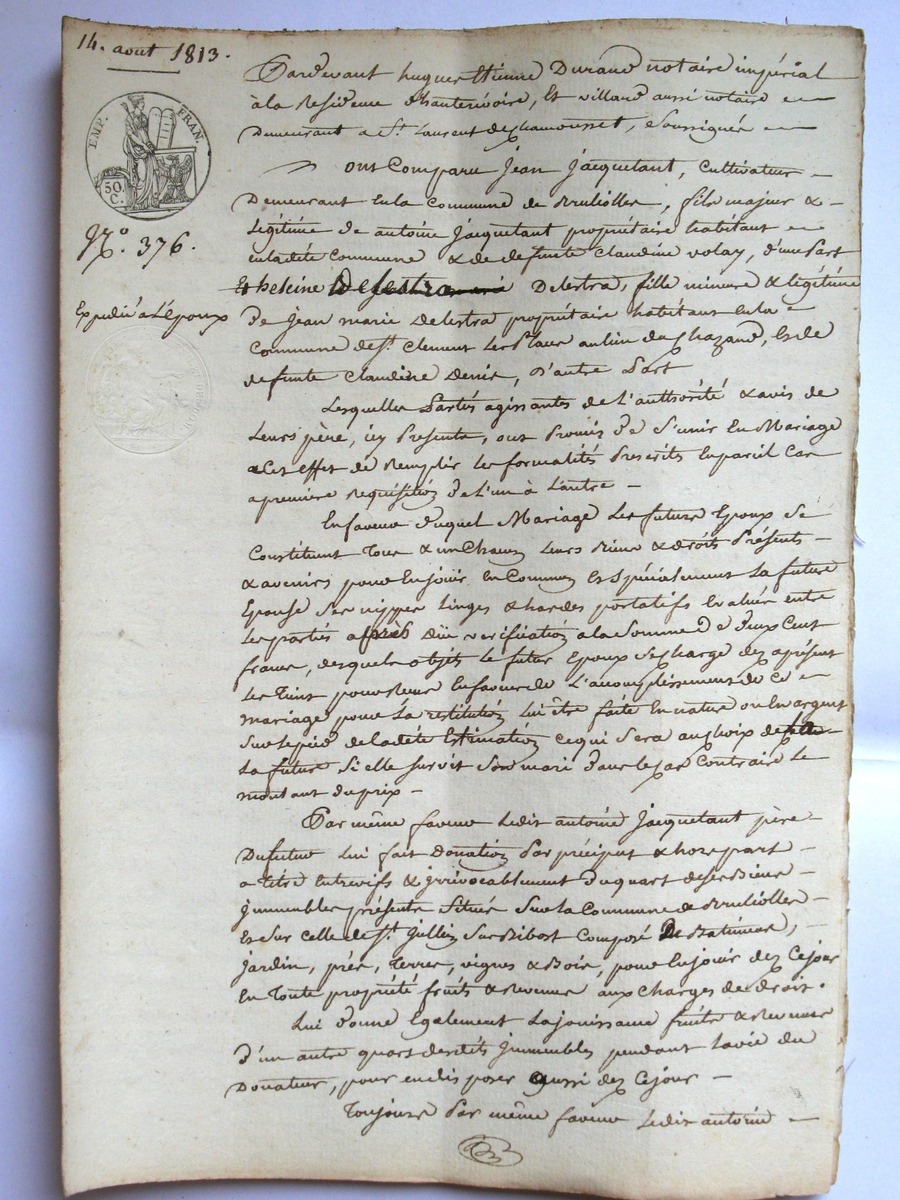 14. aout 1813.
EMP. FRAN.
50. C.
N.° 376.
Expedié à l'Epoux
Pardevant hugues Etienne Durand notaire impérial
à la Residence d'hauterivoire, Et Villard aussi notaire
Demeurant a St. Laurent de Chamousset, soussignés
ont Comparu Jean Jacquetant, Cultivateur
Demeurant En la Commune de Brulliolles, fils majeur &
legitime de antoine Jacquetant propriétaire habitant
en ladite Commune & de defunte claudine volay, d'une Part
Et heleine Delestra, fille mineure & légitime
De Jean marie Delestra propriétaire habitant En la
Commune de St. Clement les Places au lieu du Chazaud, & de
defunte Claudine Denis, D'autre Part
Lesquelles Parties agissantes de l'authorité & avis de
Leurs père, icy Presents, ont Promis de S'unir En Mariage
a Cet effet de Remplir les formalités Prescrits En pareil Cas
a premiere requisition de l'un à l'autre
En faveur duquel Mariage Les futurs Epoux Se
Constituent Tous & un Chacun leurs Biens & droits Présents
& avenirs pour En jouir En Commun Et Spécialement La future
Epouse Ses nippes linges & hardes portatifs Evalués entre
Les parties après Düe verification a la Somme De deux Cent
francs, desquels objets Le futur Epoux Se Charge dez aprésent
Les Tient pour Reçus En faveur de L'acomplissement de Ce
mariage pour La restitution Lui être faite En nature ou En argent
Sur le pied de la dite Estimation ce qui Sera au choix de
La future Si elle survit Son mari dans le cas Contraire Le
montant du prix
Par même faveur Ledit antoine Jacquetant père
Du futur Lui fait Donation Par préciput & hors part
a Titre Entrevifs & irrévocablement du quart de ses Biens
immeubles présents Situés Sur la Commune de Brulliolles
Et Sur celle de St. Jullien Sur Bibost Composé De Batiments,
Jardin, prés, Terres, vignes & Bois, pour En jouir dez Ce jour
En Toute propriété fruits & Revenus aux Charges de droit.
Lui donne Egalement La jouissance fruits & Revenus
d'un autre quart desdits immeubles pendant la vie du
Donateur, pour en disposer aussi dez Ce jour
Toujours Par même faveur Ledit antoine